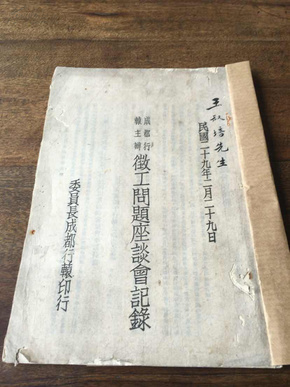 王叔培先生
民國二十九年二月二十九日
成都行
轅主辦
徵工問題座談會記錄
委員長成都行轅印行